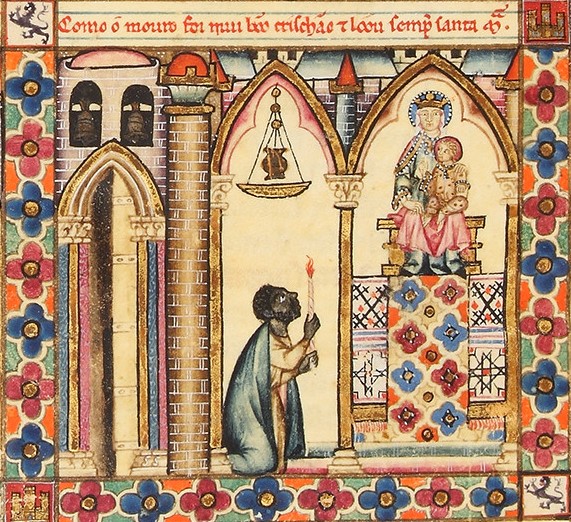 Como o mouro foi mui bõo crischão τ loou semp̃ santa Mᴬ.